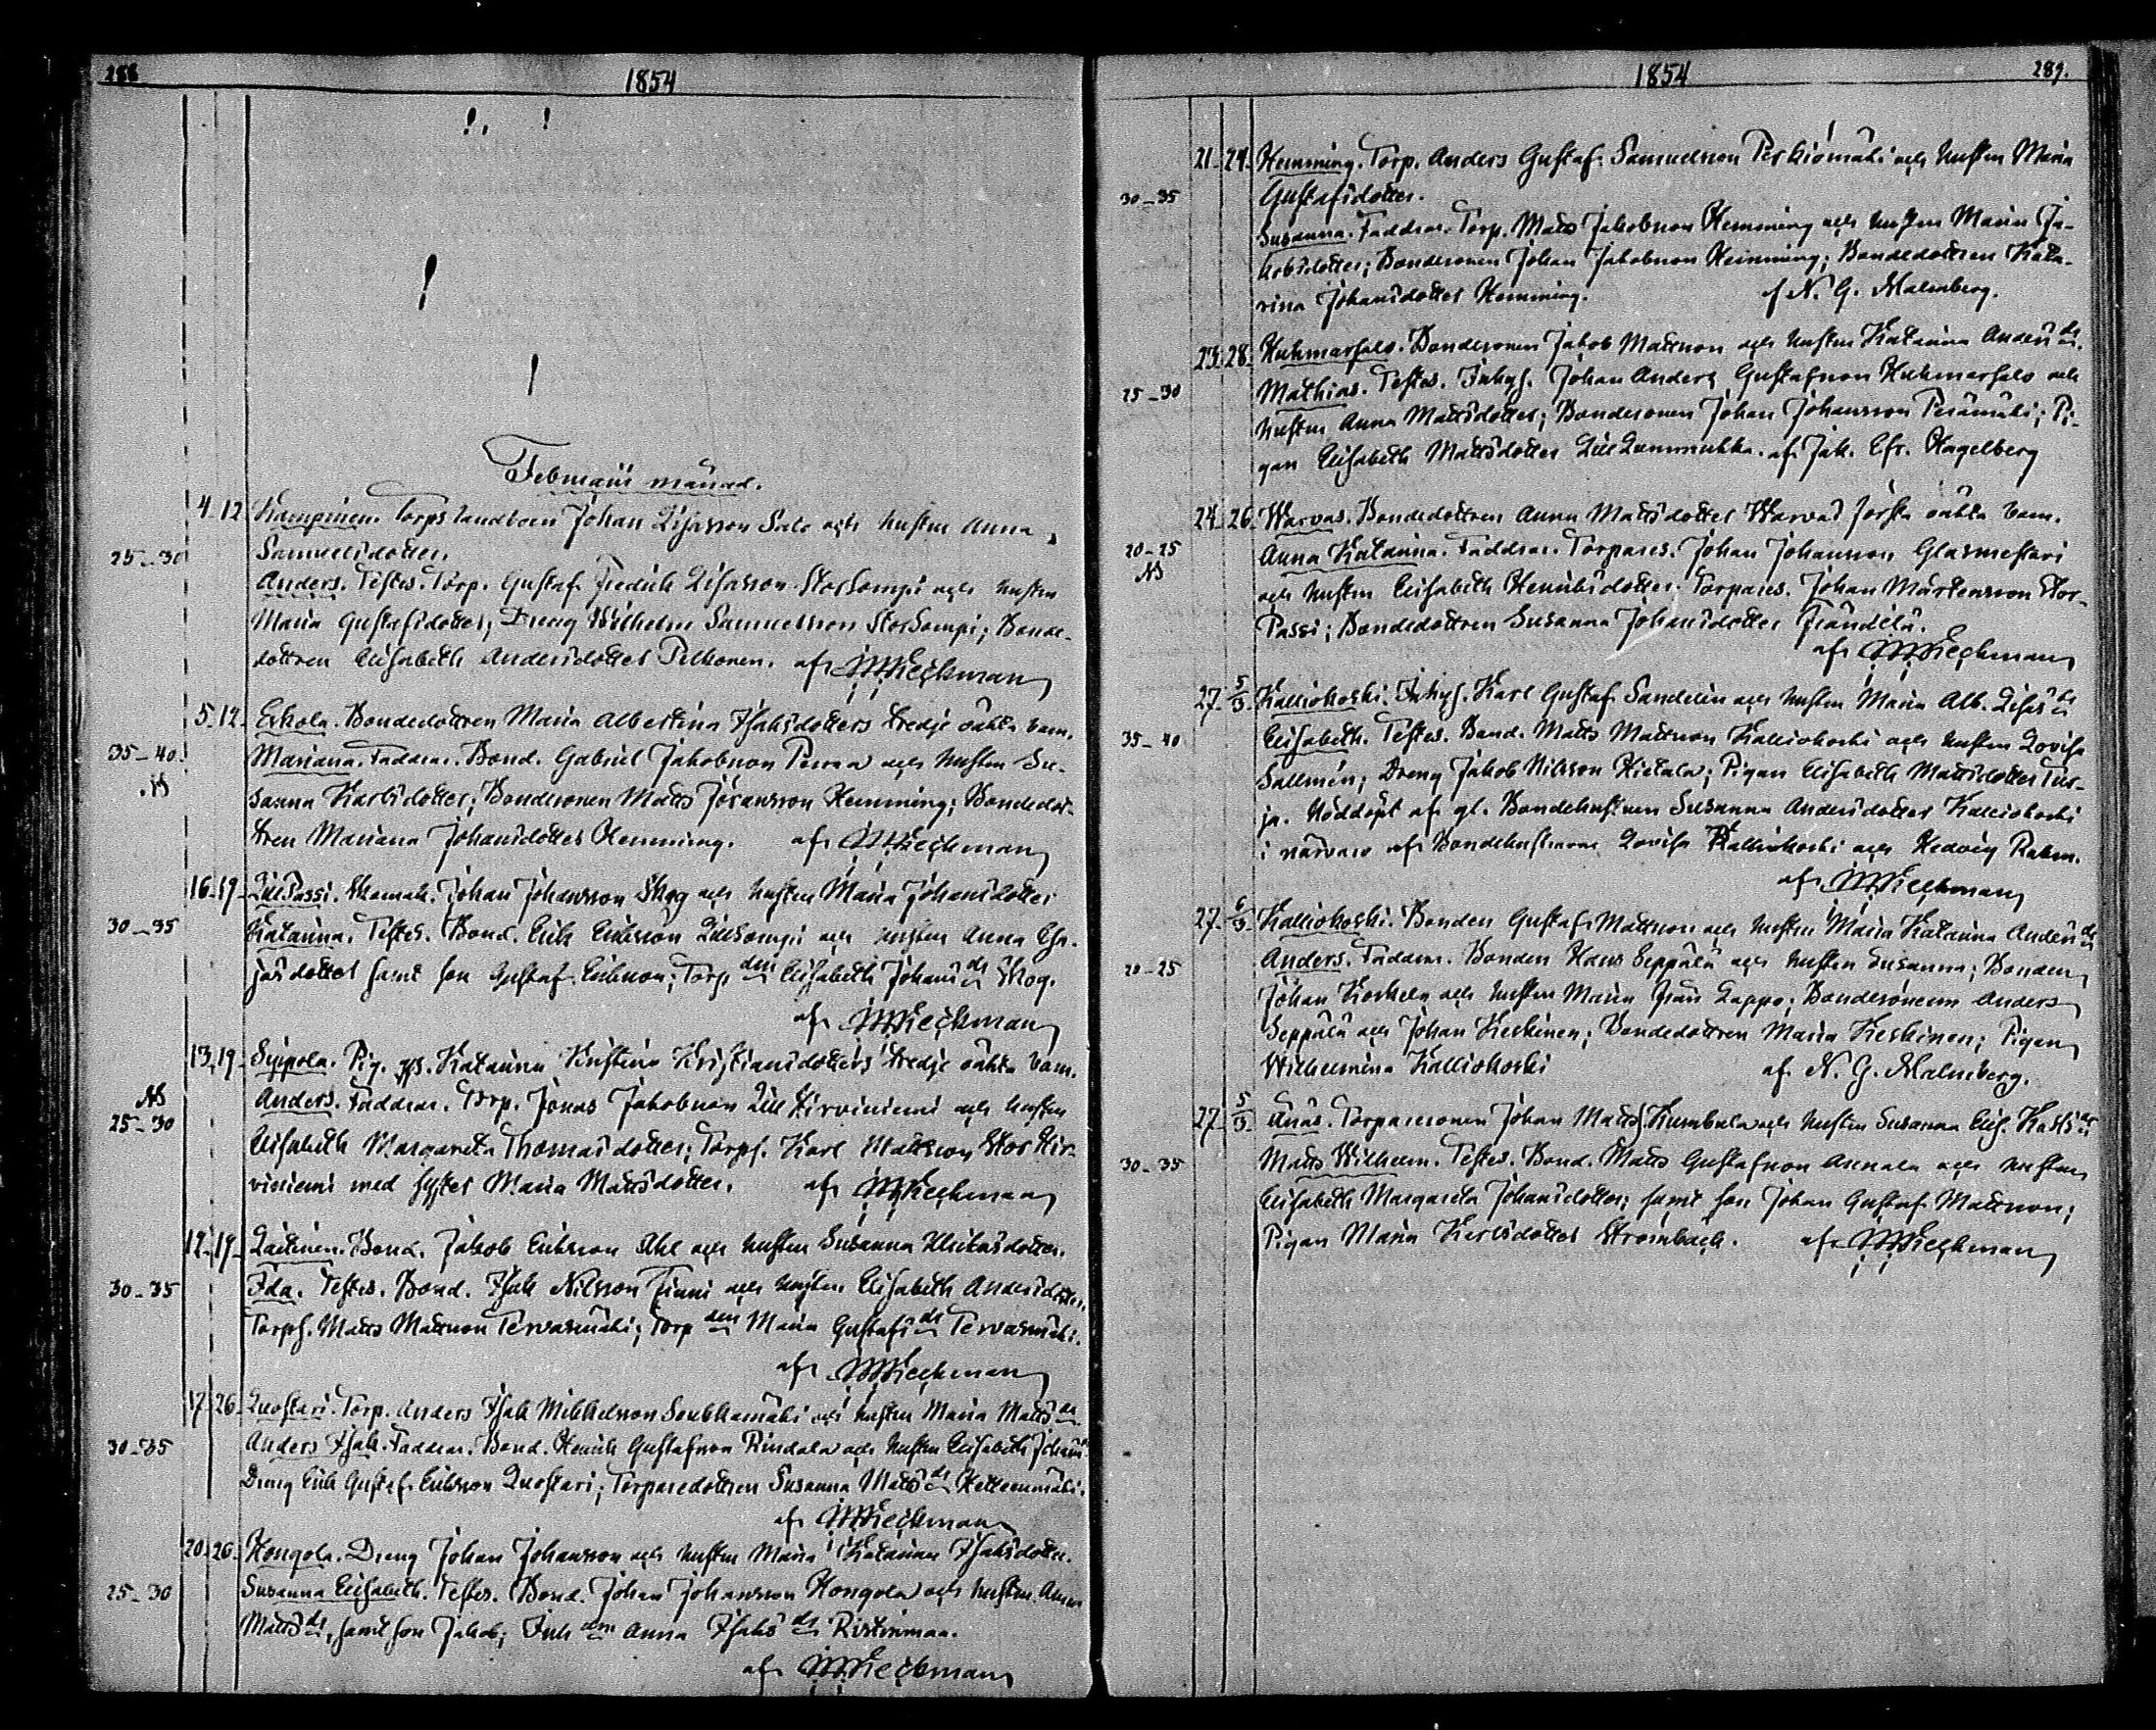 288
1854
Februarii månad.
4 12 Kampinen. Torpslandboen Johan Elisasson Salo och hustru Anna
25-30 Samuelsdotter.
Anders. Testes. Torp. Gustaf Fredrik Elisasson StorSompi och hustru
Maria Gustafsdotter; Dreng Wilhelm Samuelsson StorSompi; Bonde-
dottren Elisabeth Andersdotter Pelkonen. af Wieckman
5 12 Erkola. Bondedottren Maria Albertina Isaksdotters tredje oäkta barn.
35-40 Mariana. Faddrar. Bond. Gabriel Jakobsson Perraa och hustru Su-
NB sanna Karlsdotter; Bondesonen Matts Johansson Hemming; Bondedot-
tren Mariana Johansdotter Hemming. af Wieckman
16 19 LillPassi. Skomak. Johan Johansson Skog och hustru Maria Johansdotter
30-35 Katarina. Testes. Bond. Erik Eriksson LillSompi och hustru Anna Esa-
jasdotter samt son Gustaf Eriksson; Torp. den Elisabeth Johans dr Skog.
af Wieckman
13 19 Sippola. Pig. Katarina Kristina Kristiansdotters tredje oäkta barn.
NB Anders. Faddrar. Torp. Jonas Jakobsson Lill Hirviniemi och hustru
25-30 Elisabeth Margareta Thomasdotter; Torps. Karl Mattsson Stor Hir-
viniemi med syster Maria Mattsdotter. af Wieckman
12 19 Laitinen. Bond. Jakob Eriksson Ahl och hustru Susanna Ulrikasdotter.
30-35 Ida. Testes. Bond. Isak Nilsson Finni och hustru Elisabeth Andersdotter.
Torps. Matts Mattsson Tervasmäki; Torp den Maria Gustafs dr Tervasmäki.
af Wieckman
17 26 Luostari. Torp. Anders Isak Mikkelsson Soukkamäki och hustru Maria Matts dr
30-35 Anders Isak. Faddrar. Bond. Henrik Gustafsson Rindala och hustru Elisabeth Johans
Dreng Erik Gustaf Eriksson Luostari; Torparedottren Susanna Matts dr Kettumäki.
af Wieckman
20 26 Hongola. Dreng Johan Johansson och hustru Maria Katarina Isaksdotter.
25-30 Susanna Elisabeth. Testes. Bond. Johan Johansson Hongola och hustru Anna
Matts dr, samt son Jakob; Inh. den Anna Isaks dr Ristinmaa.
af Wieckman
1854
289.
21 24 Hemming. Torp. Anders Gustaf Samuelsson Perkiömäki och hustru Maria
30-35 Gustafsdotter.
Susanna. Faddrar. Torp. Matts Jakobsson Hemming och hustru Maria Ja-
kobsdotter; Bondesonen Johan Jakobsson Hemming; Bondedottren Kata-
rina Johansdotter Hemming. af N. G. Malmberg.
23 28 Huhmarsalo. Bondesonen Jakob Mattsson och hustru Katarina Anders dr.
25-30 Mathias. Testes. Inhys. Johan Anders Gustafsson Huhmarsalo och
hustru Anna Mattsdotter; Bondesonen Johan Johansson Perämäki; Pi-
gan Elisabeth Mattsdotter Lill Lummukka. af Jak. Efr. Hagelberg
24 26 Warvas. Bondedottren Anna Mattsdotter Warvas första oäkta barn.
20-25 Anna Katarina. Faddrar. Torpares. Johan Johansson Glasmestari
NB och hustru Elisabeth Henriksdotter. Torpares. Johan Mårtensson Stor-
Passi; Bondedottren Susanna Johansdotter Frändilä.
af Wieckman
27 5/3 Kalliokoski. Inhys. Karl Gustaf Sandelin och hustru Maria Alb. Elias dr
35-40 Elisabeth. Testes. Bond. Matts Mattsson Kalliokoski och hustru Lovisa
Sallmén; Dreng Jakob Nilsson Hietala; Pigan Elisabeth Mattsdotter Tur-
ja. Nöddöpt af gl. Bondehustrun Susanna Andersdotter Kalliokoski
i närvaro af Bondehustrurna Lovisa Kalliokoski och Hedvig
af Wieckman
27 6/3 Kalliokoski. Bonden Gustaf Mattsson och hustru Maria Katarina Anders dr
20-25 Anders. Faddrar. Bonden Hans Seppälä och hustru Susanna; Bonden
Johan Koskela och hustru Maria från Lappo; Bondesönerna Anders
Seppälä och Johan Keskinen; Bondedottren Maria Keskinen; Pigan
Wilhelmina Kalliokoski af N. G. Malmberg.
27 5/3 Anäs. Torparesonen Johan Matts. Kumbula och hustru Susanna Elis. Karls dr
30-35 Matts Wilhelm. Testes. Bond. Matts Gustafsson Asenala och hustru
Elisabeth Margareta Johansdotter; samt son Johan Gustaf Mattsson;
Pigan Maria Karlsdotter Strömbäck. af Wieckman